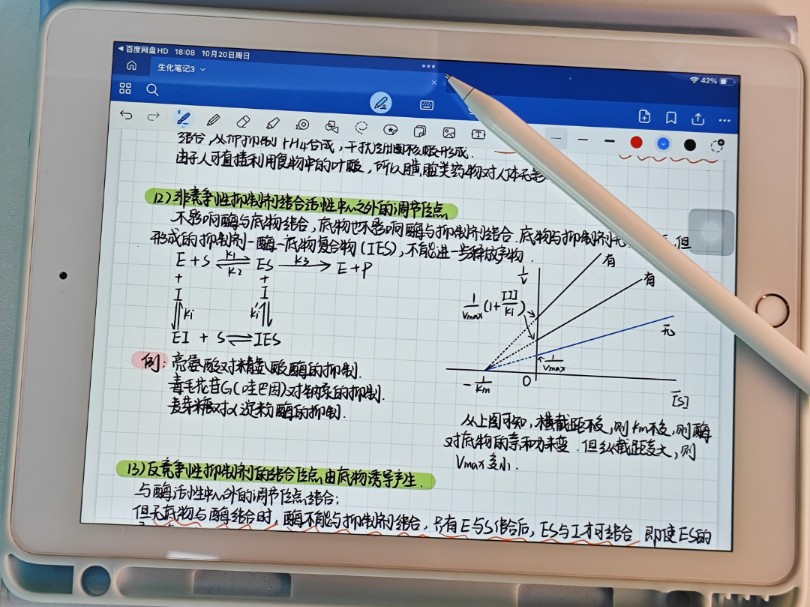 百度网盘HD 18:08 10月20日周日
42%
生化笔记3
结合,从而抑制FH4合成,干扰细菌核酸形成.
由于人可直接利用食物中的叶酸,所以磺胺类药物对人体无
(2)非竞争性抑制剂结合活性中心之外的调节位点
不影响酶与底物结合,底物也不影响酶与抑制剂结合.底物与抑制剂无 但
形成的抑制剂-酶-底物复合物(IES),不能进一步释放产物.
E + S ⇌ ES → E + P
K1 K2 K3
+ +
I I
Ki Ki'
EI + S ⇌ IES
例:亮氨酸对精氨酸酶的抑制.
毒毛花苷G(哇巴因)对钠泵的抑制.
麦芽糖对α淀粉酶的抑制.
1/V
有
有
无
1/Vmax(1+[I]/Ki)
1/Vmax
-1/Km
0
[S]
从上图可知,横截距不变,则Km不变,则酶
对底物的亲和力未变.但纵截距变大,则
Vmax变小.
(3)反竞争性抑制剂的结合位点由底物诱导产生.
与酶活性中心外的调节位点结合;
但无底物与酶结合时,酶不能与抑制剂结合,只有E与S结合后,ES与I才可结合 即使ES的